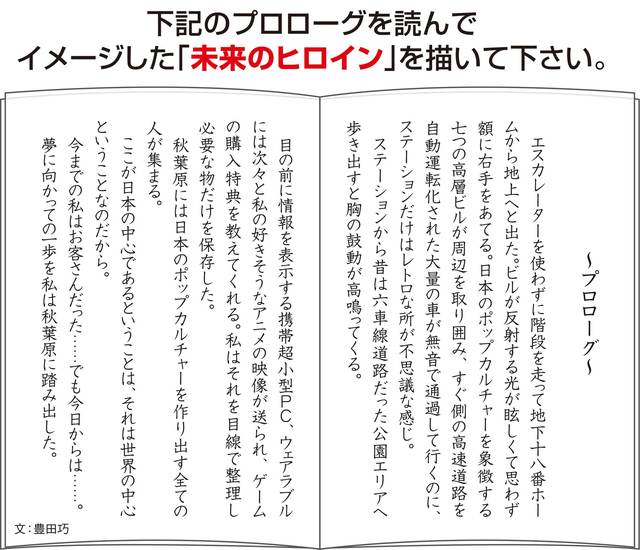 下記のプロローグを読んで
イメージした「未来のヒロイン」を描いて下さい。
～プロローグ～
エスカレーターを使わずに階段を走って地下十八番ホー
ムから地上へと出た。ビルが反射する光が眩しくて思わず
額に右手をあてる。日本のポップカルチャーを象徴する
七つの高層ビルが周辺を取り囲み、すぐ側の高速道路を
自動運転化された大量の車が無音で通過して行くのに、
ステーションだけはレトロな所が不思議な感じ。
ステーションから昔は六車線道路だった公園エリアへ
歩き出すと胸の鼓動が高鳴ってくる。
目の前に情報を表示する携帯超小型PC、ウェアラブル
には次々と私の好きそうなアニメの映像が送られ、ゲーム
の購入特典を教えてくれる。私はそれを目線で整理し
必要な物だけを保存した。
秋葉原には日本のポップカルチャーを作り出す全ての
人が集まる。
ここが日本の中心であるということは、それは世界の中心
ということなのだから。
今までの私はお客さんだった……でも今日からは……。
夢に向かっての一歩を私は秋葉原に踏み出した。
文：豊田巧